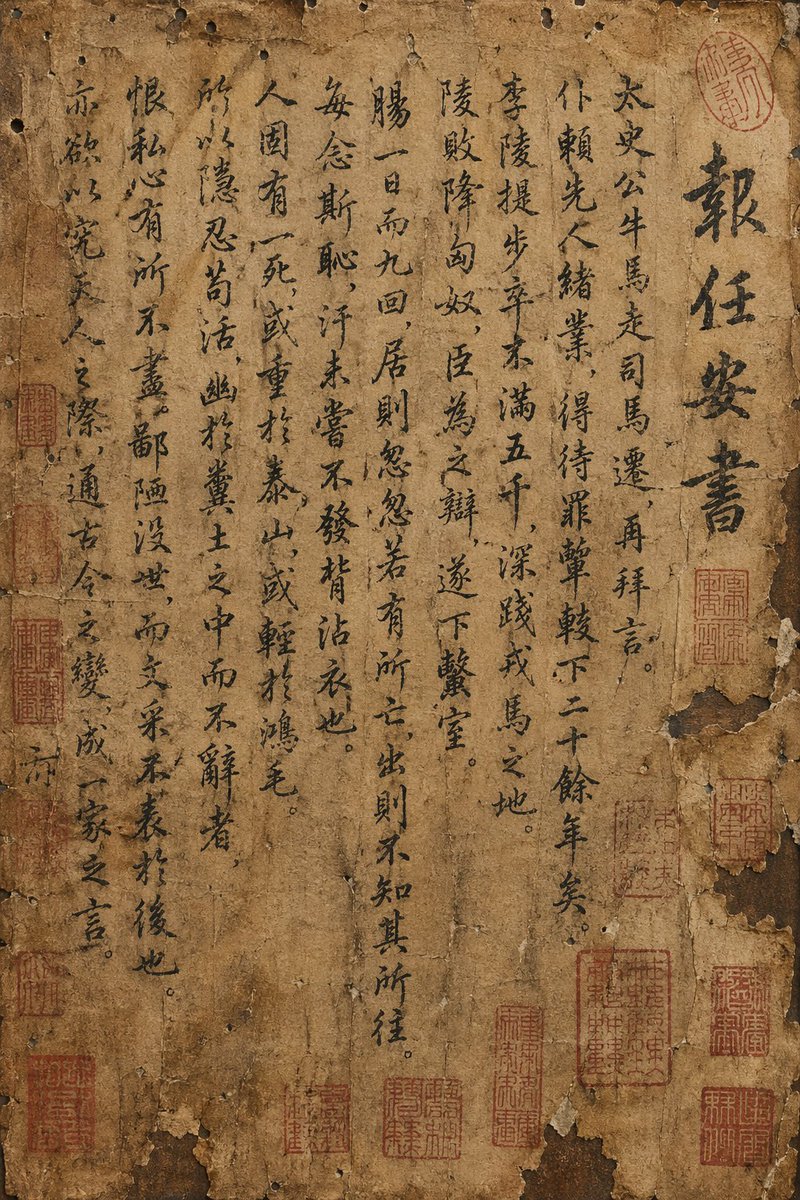 報任安書
太史公牛馬走司馬遷,再拜言。
仆賴先人緒業,得待罪輦轂下二十餘年矣。
李陵提步卒不滿五千,深踐戎馬之地。
陵敗降匈奴,臣為之辯,遂下蠶室。
腸一日而九回,居則忽忽若有所亡,出則不知其所往。
每念斯恥,汗未嘗不發背沾衣也。
人固有一死,或重於泰山,或輕於鴻毛。
所以隱忍苟活,幽於糞土之中而不辭者,
恨私心有所不盡。鄙陋沒世,而文采不表於後也。
亦欲以究天人之際,通古今之變,成一家之言。
亦